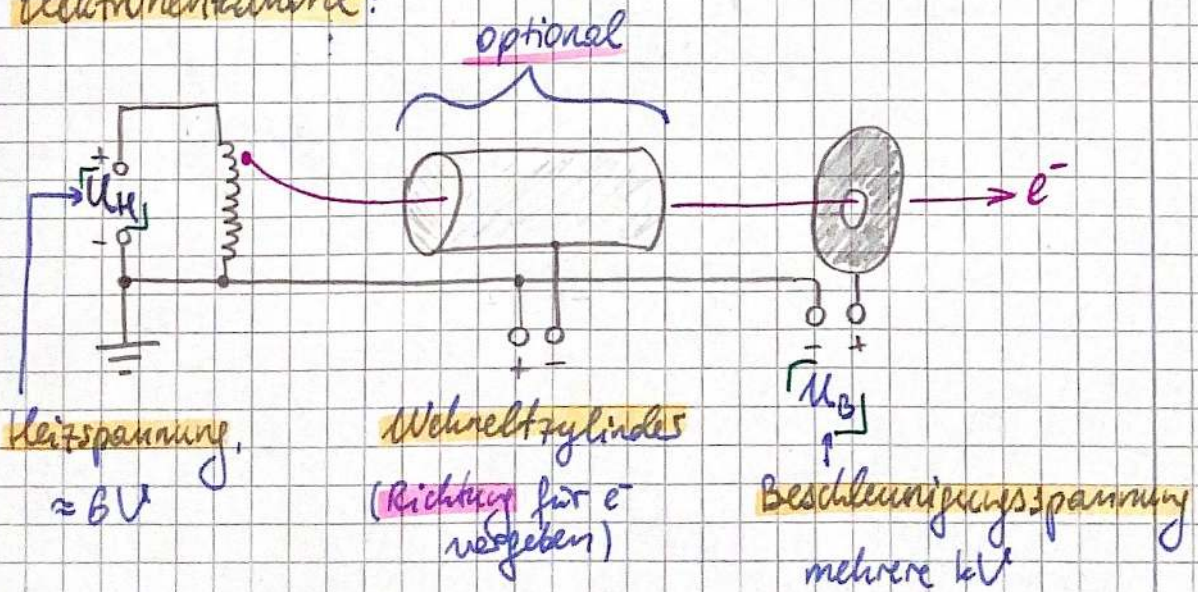 Elektronenkanone:
optional
+
U_H
-
e⁻
+ -
- +
U_B
Heizspannung,
≈ 6 V
Wehneltzylinder
(Richtung für e⁻
vorgeben)
Beschleunigungsspannung
mehrere kV